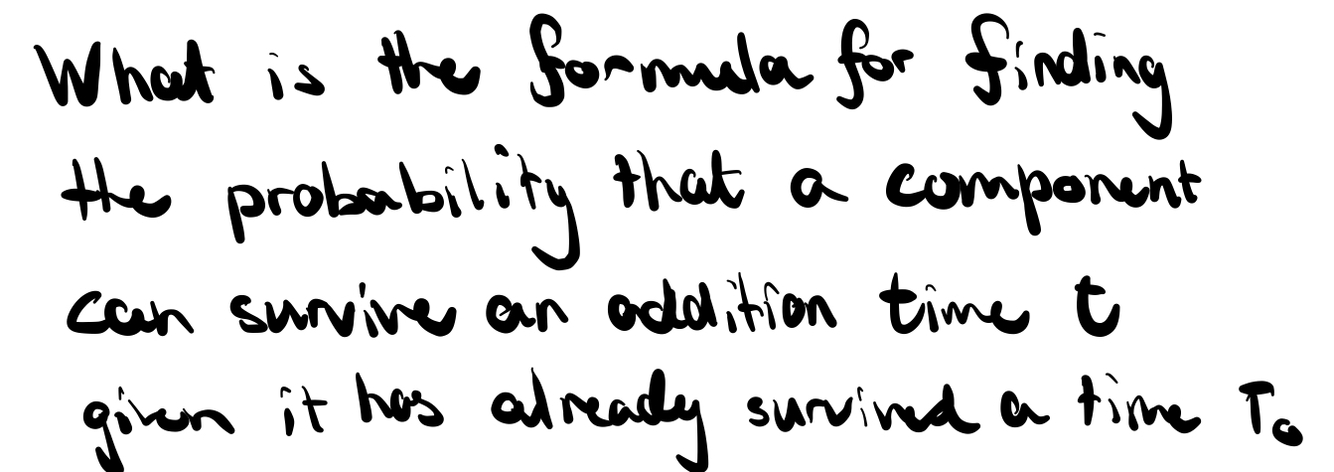 What is the formula for finding
the probability that a component
can survive an addition time t
given it has already survived a time T₀